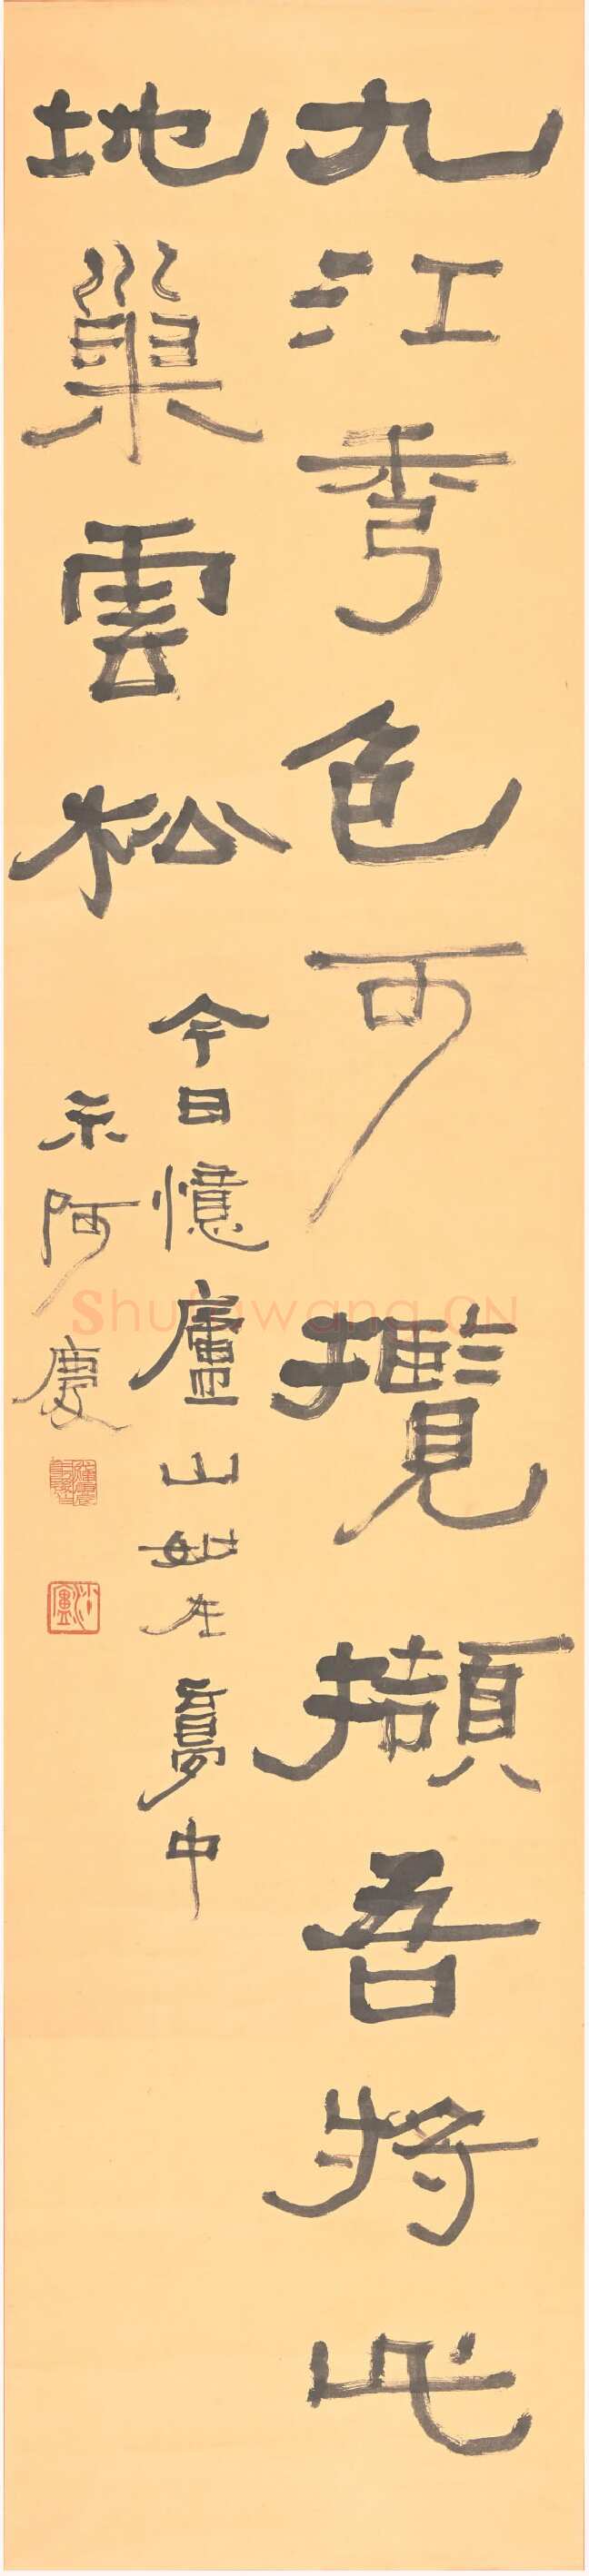 九江秀色可攬擷吾將此
地巢雲松
今日憶廬山如在夢中
示阿慶
Shufawang.CN